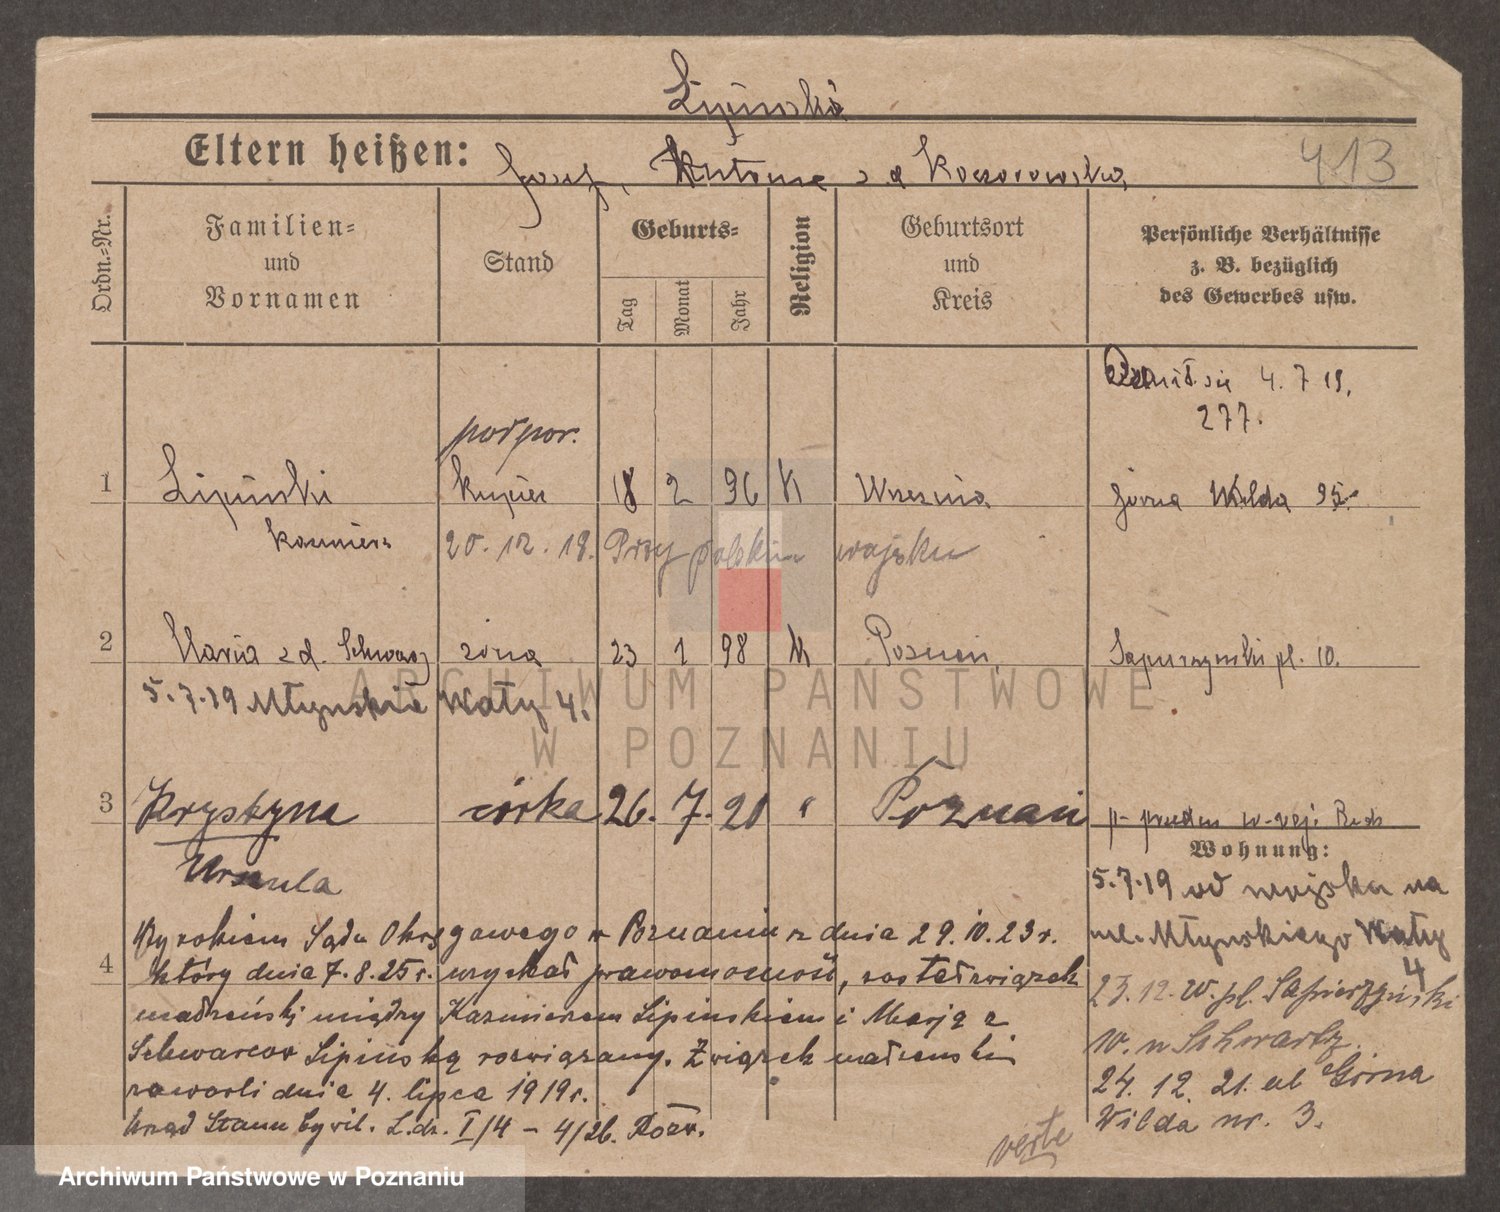 Lipiński
Eltern heißen: Józef, Antonina z d. Kaczorowska
413
Ordn.-Nr.
Familien-
und
Vornamen
Stand
Geburts-
Tag
Monat
Jahr
Religion
Geburtsort
und
Kreis
Persönliche Verhältnisse
z. B. bezüglich
des Gewerbes usw.
4. 7 19.
277.
podpor.
1 Lipiński kupiec 18 2 96 K Września Górna Wilda 95
Kazimierz 20. 12. 19. Przy polskim wojsku
2 Maria z d. Schwarz żona 23 1 98 K Poznań Sapieżyński pl. 10.
5.7.19 Młyńskie Wały 4.
3 Krystyna córka 26. 7. 20 " Poznań
Urszula
Wohnung:
5.7.19 od wojska na
ul. Młyńskiego Wały
4
23. 12. W. pl. Sapieżyński
10. u Schwartz.
24. 12. 21. ul Górna
Wilda nr. 3.
4 Wyrokiem Sądu Okręgowego w Poznaniu z dnia 29. 10. 23 r.
który dnia 7. 8. 25 r. uzyskał prawomocność, został związek
małżeński między Kazimierzem Lipińskim i Marją z
Schwarców Lipińską rozwiązany. Związek małżeński
zawarli dnia 4. lipca 1919 r.
Urząd Stanu Cywil. L. dz. I/4 - 4/26. Pozn.
verte
ARCHIWUM PAŃSTWOWE
W POZNANIU
Archiwum Państwowe w Poznaniu